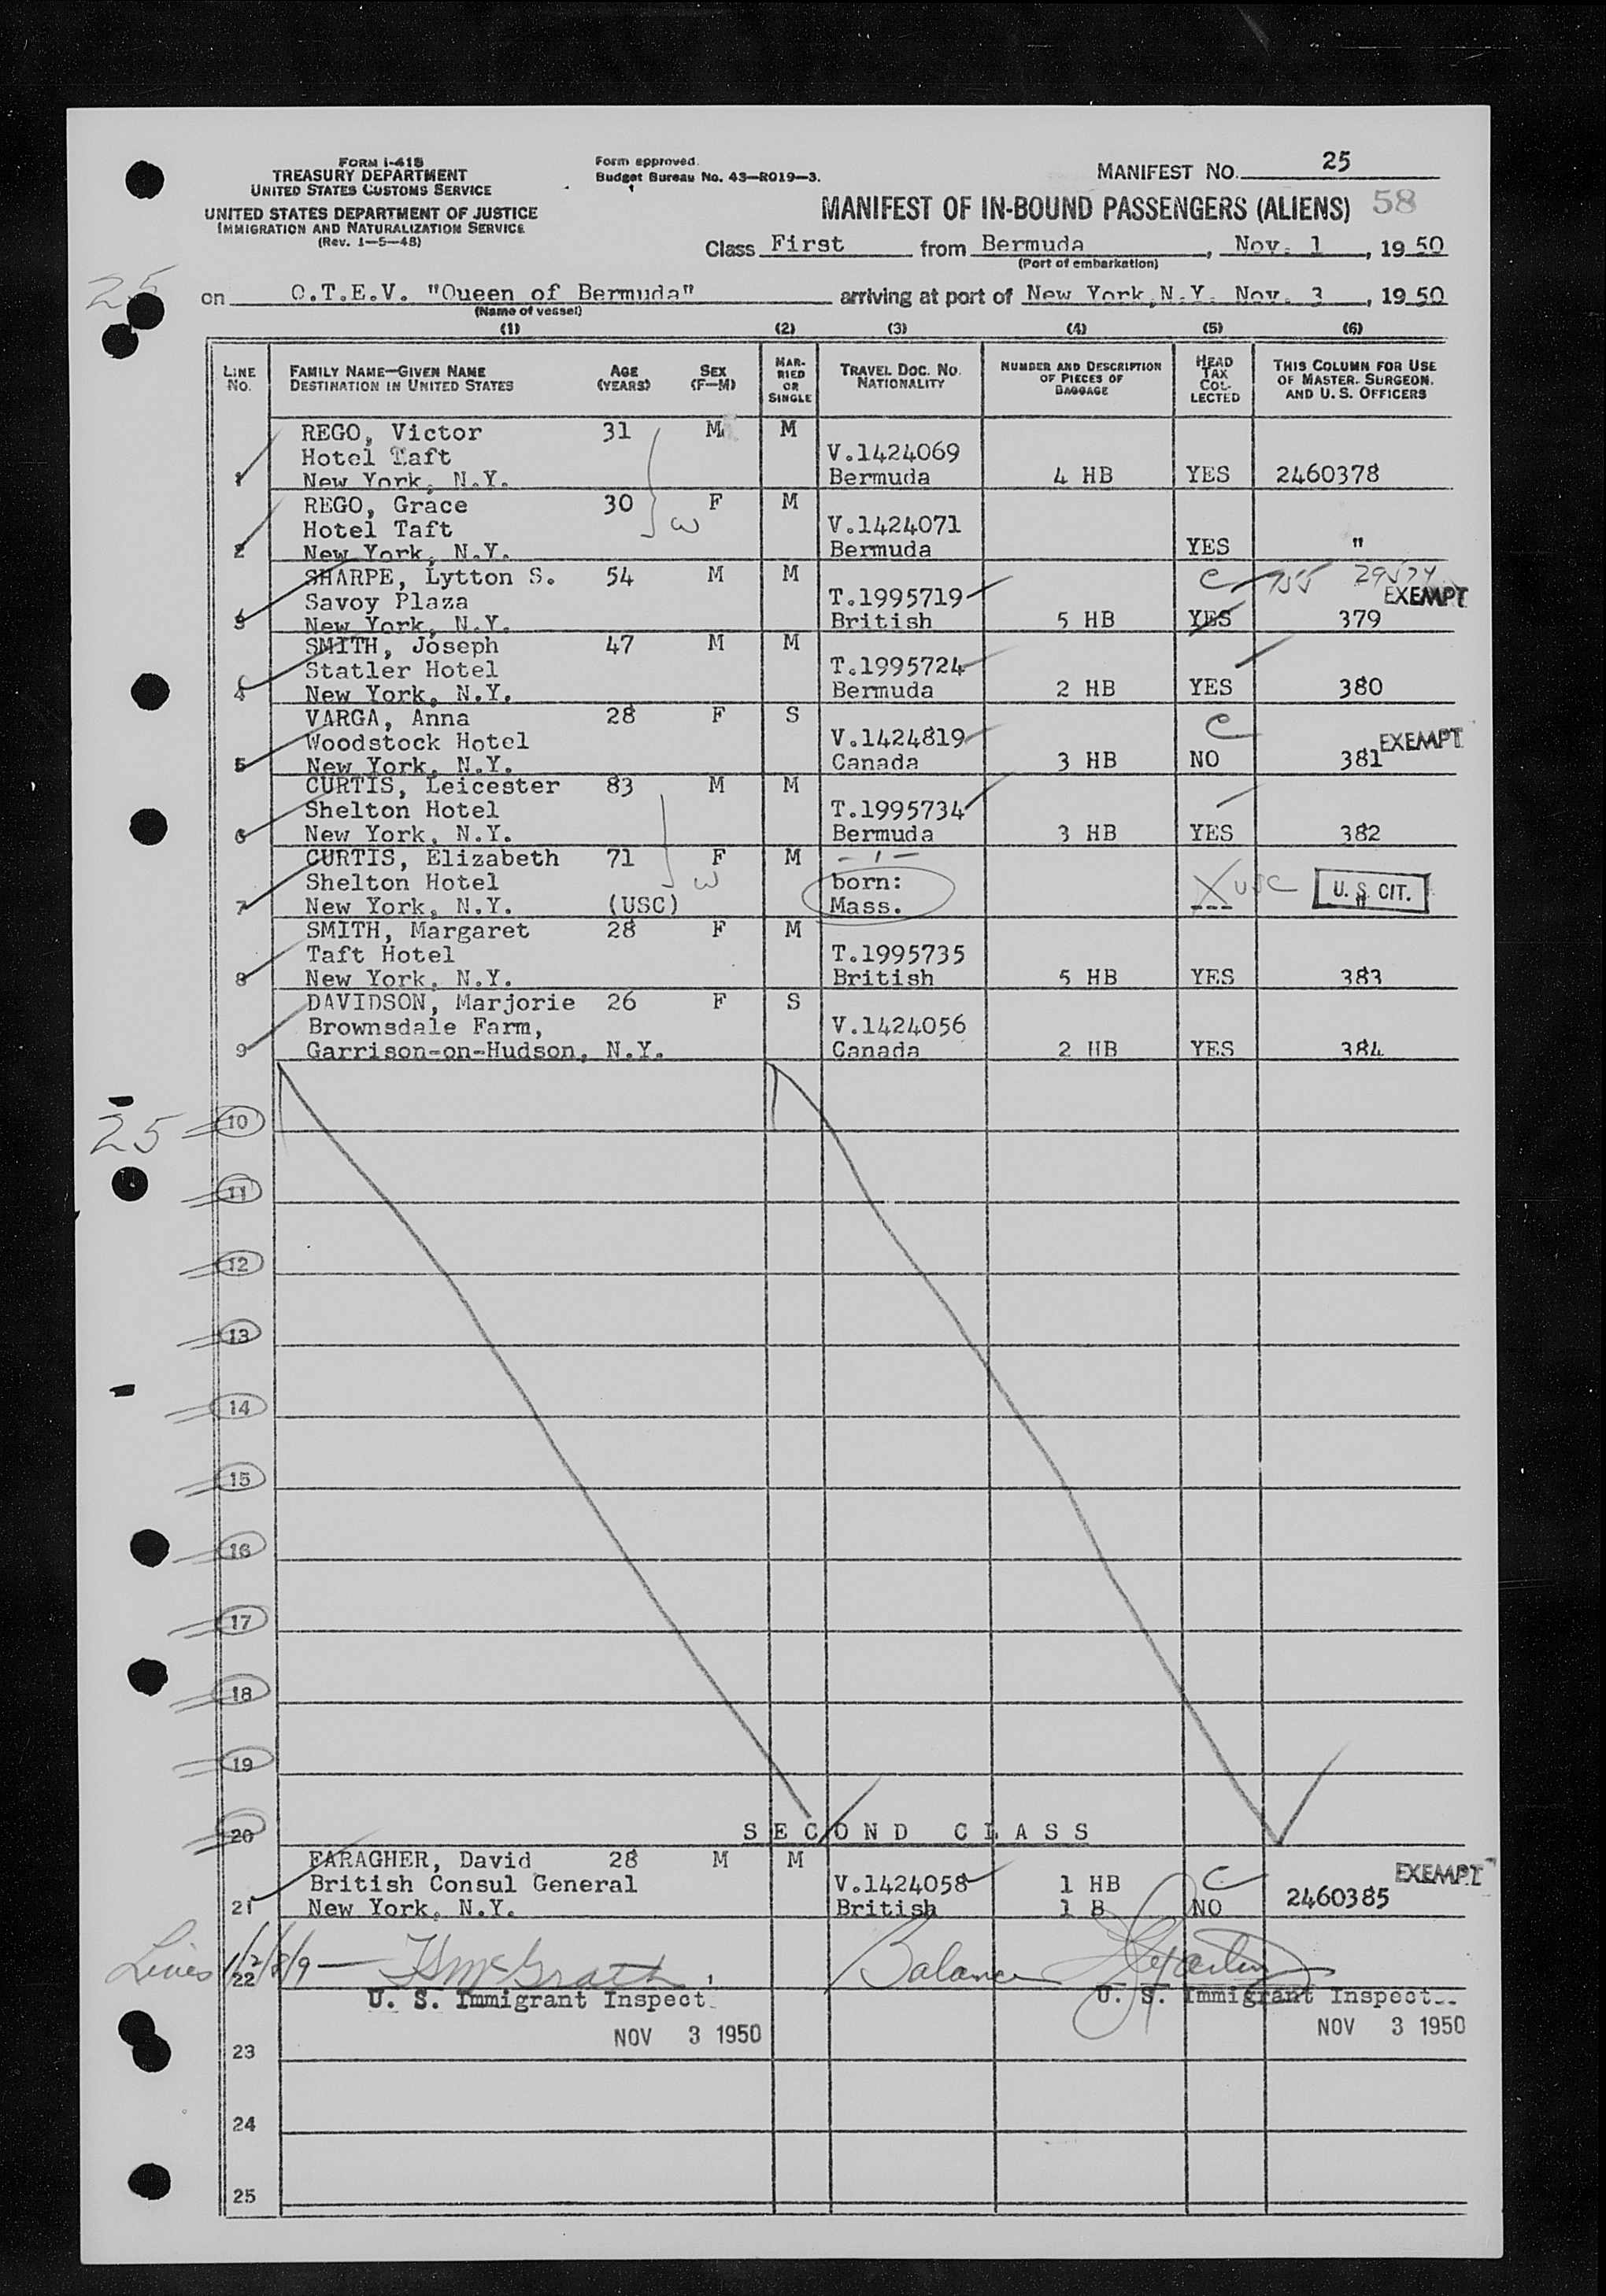 FORM I-418
TREASURY DEPARTMENT
UNITED STATES CUSTOMS SERVICE
UNITED STATES DEPARTMENT OF JUSTICE
IMMIGRATION AND NATURALIZATION SERVICE
(Rev. 1-5-48)
Form approved.
Budget Bureau No. 43-R019-3.
MANIFEST NO. 25
MANIFEST OF IN-BOUND PASSENGERS (ALIENS) 58
Class First from Bermuda, Nov. 1, 1950
(Port of embarkation)
25
on Q.T.E.V. "Queen of Bermuda" arriving at port of New York, N.Y. Nov. 3, 1950
(Name of vessel)
(1) (2) (3) (4) (5) (6)
LINE NO. FAMILY NAME—GIVEN NAME DESTINATION IN UNITED STATES AGE (YEARS) SEX (F—M) MARRIED OR SINGLE TRAVEL DOC. NO. NATIONALITY NUMBER AND DESCRIPTION OF PIECES OF BAGGAGE HEAD TAX COLLECTED THIS COLUMN FOR USE OF MASTER, SURGEON, AND U. S. OFFICERS
REGO, Victor 31 M M
Hotel Taft V.1424069
1 New York, N.Y. Bermuda 4 HB YES 2460378
REGO, Grace 30 F M
Hotel Taft W V.1424071
2 New York, N.Y. Bermuda YES "
SHARPE, Lytton S. 54 M M C
Savoy Plaza T.1995719 EXEMPT
3 New York, N.Y. British 5 HB YES 379
SMITH, Joseph 47 M M
Statler Hotel T.1995724
4 New York, N.Y. Bermuda 2 HB YES 380
VARGA, Anna 28 F S C
Woodstock Hotel V.1424819 EXEMPT
5 New York, N.Y. Canada 3 HB NO 381
CURTIS, Leicester 83 M M
Shelton Hotel T.1995734
6 New York, N.Y. Bermuda 3 HB YES 382
CURTIS, Elizabeth 71 F M - ' -
Shelton Hotel W born: USC U. S. CIT.
7 New York, N.Y. (USC) Mass. --- "
SMITH, Margaret 28 F M
Taft Hotel T.1995735
8 New York, N.Y. British 5 HB YES 383
DAVIDSON, Marjorie 26 F S
Brownsdale Farm, V.1424056
9 Garrison-on-Hudson, N.Y. Canada 2 HB YES 384
25 10
11
12
13
14
15
16
17
18
19
20 SECOND CLASS
FARAGHER, David 28 M M EXEMPT
British Consul General V.1424058 1 HB C
21 New York, N.Y. British 1 B NO 2460385
Lines 1/2/8/9 — McGrath Balance
22
U. S. Immigrant Inspect. U. S. Immigrant Inspect
NOV 3 1950 NOV 3 1950
23
24
25